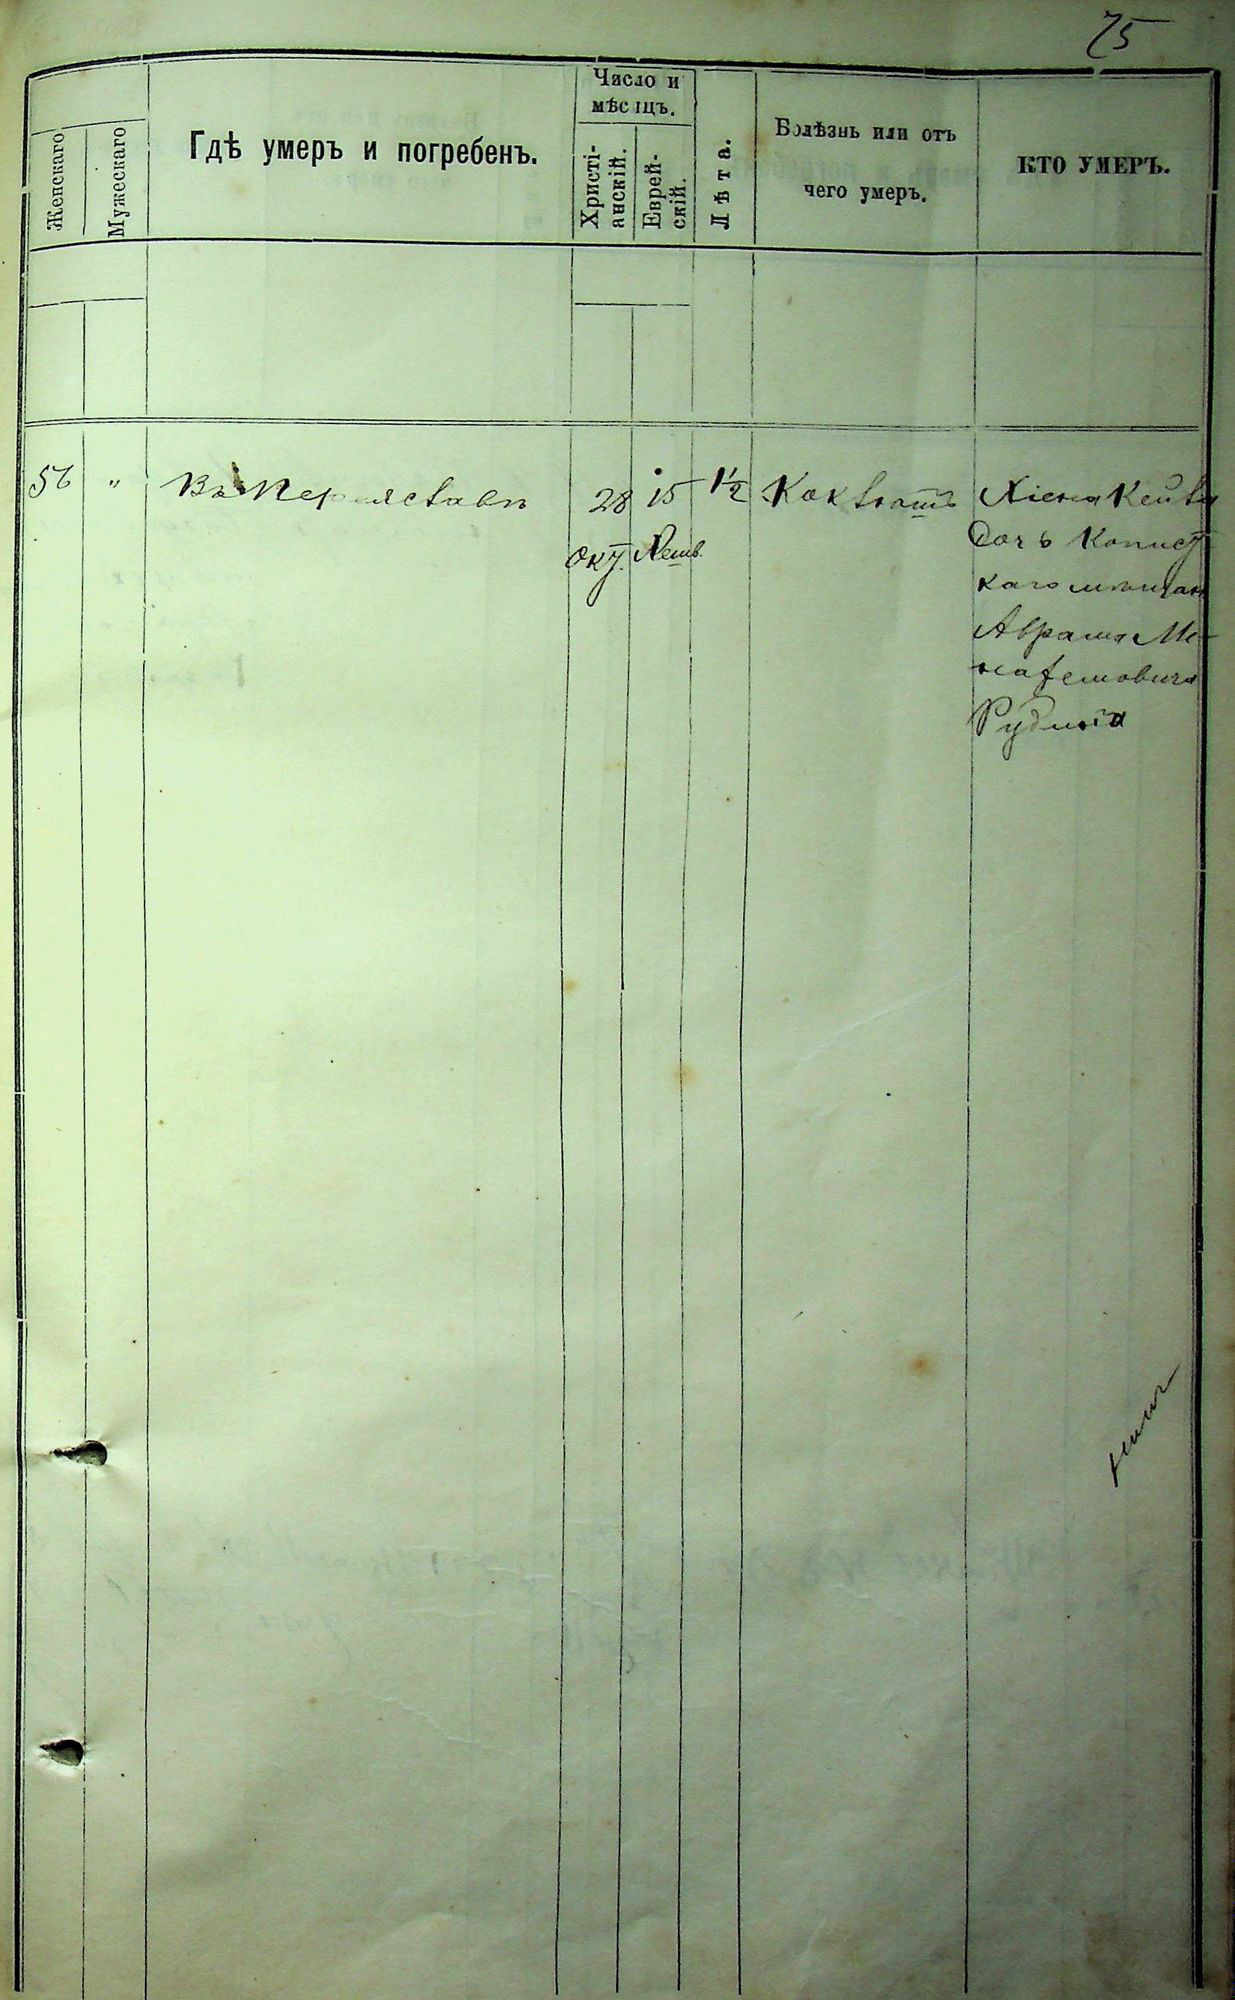 75
Женскаго
Мужескаго
Гдѣ умеръ и погребенъ.
Число и
мѣсяцъ.
Христі-
анскій.
Еврей-
скій.
Лѣта.
Болѣзнь или отъ
чего умеръ.
КТО УМЕРЪ.
56 " Въ Переяславѣ 28 15 1½ Коклюшъ
Окт. Хешв. Дочь
каго мѣщан
Аврама Ме-
нахемовича